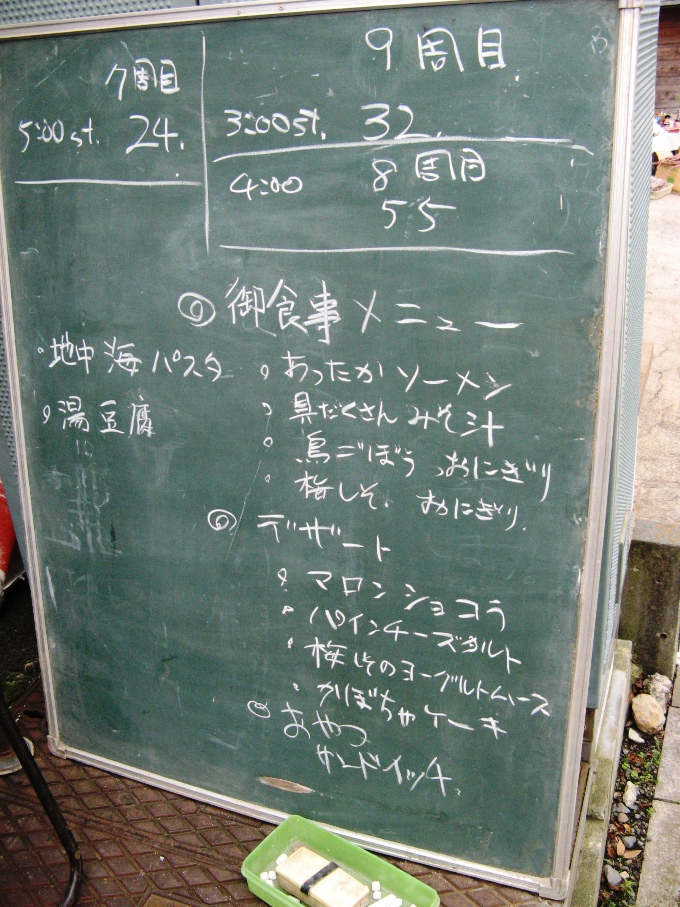 7周目
5:00st. 24.
9周目
3:00st. 32.
4:00 8周目
55
◎御食事メニュー
・地中海パスタ
・湯豆腐
・あったかソーメン
・具だくさんみそ汁
・鳥ごぼうおにぎり
・梅しそ.おにぎり.
◎デザート
・マロンショコラ
・パインチーズタルト
・梅しそのヨーグルトムース
・かぼちゃケーキ
◎おやつ
サンドイッチ.